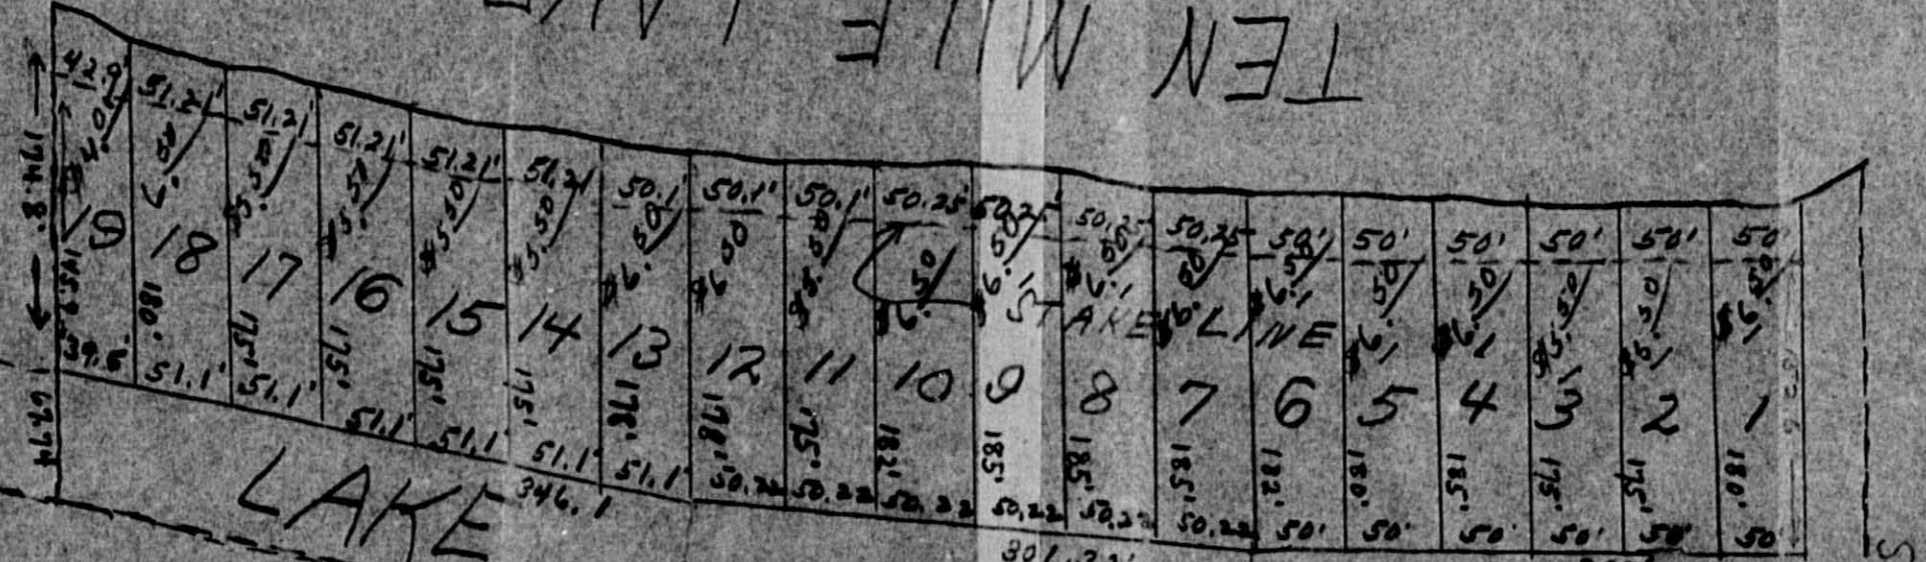 TEN MILE LAKE
42.9' 51.21' 51.21' 51.21' 51.21' 51.21' 50.1' 50.1' 50.1' 50.25' 50.25' 50.25' 50.25 50' 50' 50' 50' 50' 50'
$4.05 6.50 $5.50 $5.50 $5.50 $5.50 $6.50 $6.50 $5.50 $6.50 $6.50 $6.50 $6.50 $6.50 $6.50 $6.50 $5.50 $5.50 $6.50
STAKE LINE
19 18 17 16 15 14 13 12 11 10 9 8 7 6 5 4 3 2 1
174.8'
180' 175' 175' 175' 175' 178' 178' 175' 182' 185' 185' 185' 182' 180' 185' 175' 175' 180'
39.5' 51.1' 51.1' 51.1' 51.1' 51.1' 51.1' 50.22 50.22 50.22 50.22 50.22 50.22 50' 50' 50' 50' 50' 50
LAKE
346.1
301.32'
S